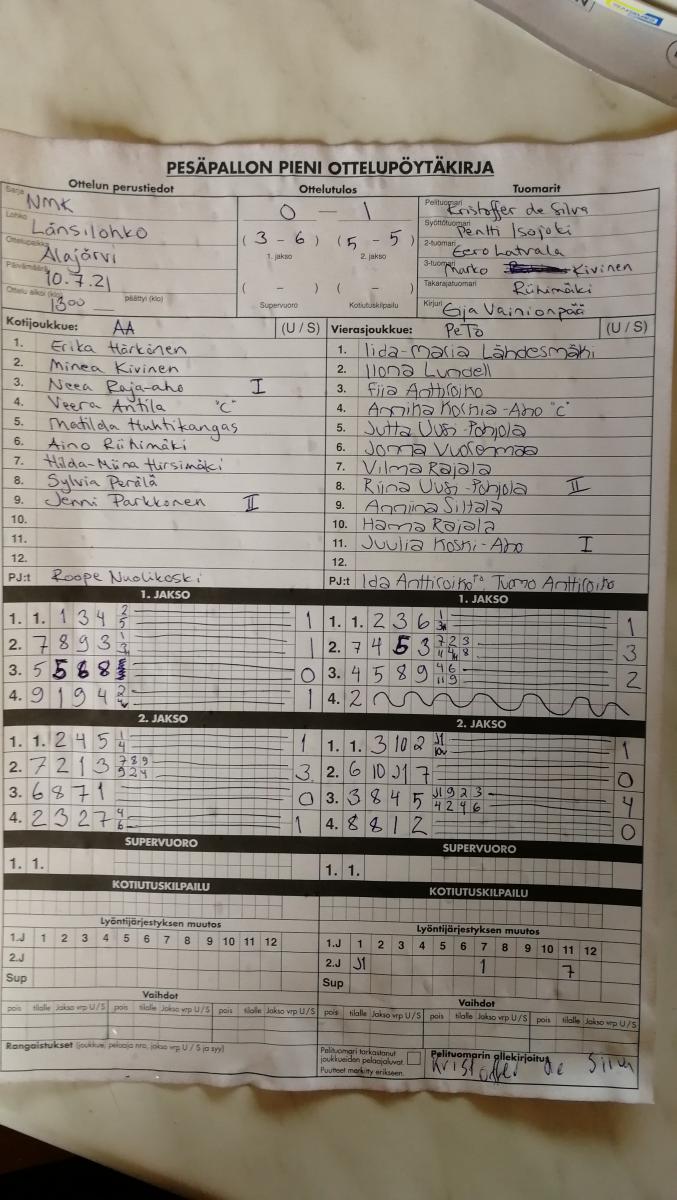 PESÄPALLON PIENI OTTELUPÖYTÄKIRJA
Ottelun perustiedot Ottelutulos Tuomarit
Sarja NMK
Lohko Länsilohko
Ottelupaikka Alajärvi
Päivämäärä 10.7.21
Ottelu alkoi (klo) 1300 päättyi (klo)
0 – 1
(3 – 6) (5 – 5)
1. jakso 2. jakso
( – ) ( – )
Supervuoro Kotiutuskilpailu
Pelituomari Kristoffer de Silva
Syöttötuomari Pentti Isojoki
2-tuomari Eero Latvala
3-tuomari Marko Kivinen
Takarajatuomari Riihimäki
Kirjuri Eija Vainionpää
Kotijoukkue: AA (U / S)
1. Erika Härkönen
2. Minea Kivinen
3. Neea Raja-aho I
4. Veera Antila "C"
5. Matilda Huhtikangas
6. Aino Riihimäki
7. Hilda-Miina Hirsimäki
8. Sylvia Perälä
9. Jenni Parkkonen II
10.
11.
12.
PJ:t Roope Nuolikoski
Vierasjoukkue: PeTo (U / S)
1. Iida-Maria Lähdesmäki
2. Ilona Lundell
3. Fiia Anttiroiko
4. Annika Koskia-Aho "C"
5. Jutta Uusi-Pohjola
6. Jonna Vuorenmaa
7. Vilma Rajala
8. Riina Uusi-Pohjola II
9. Anniina Siltala
10. Hanna Rajala
11. Juulia Koski-Aho I
12.
PJ:t Ida Anttiroiko Tuomo Anttiroiko
1. JAKSO
1. 1. 1 3 4 2 5 1
2. 7 8 9 3 1 3 1
3. 5 5 6 8 0
4. 9 1 9 4 2 1
1. JAKSO
1. 1. 2 3 6 1 1
2. 7 4 5 3 7 2 3 11 4 8 3
3. 4 5 8 9 4 6 11 9 2
4. 2
2. JAKSO
1. 1. 2 4 5 1 4 1
2. 7 2 1 3 7 8 9 9 2 4 3
3. 6 8 7 1 0
4. 2 3 2 7 4 6 1
2. JAKSO
1. 1. 3 10 2 11 1
2. 6 10 11 7 0
3. 3 8 4 5 11 9 2 3 4 2 4 6 4
4. 8 8 1 2 0
SUPERVUORO
1. 1.
SUPERVUORO
1. 1.
KOTIUTUSKILPAILU
KOTIUTUSKILPAILU
Lyöntijärjestyksen muutos
1.J 1 2 3 4 5 6 7 8 9 10 11 12
2.J
Sup
Lyöntijärjestyksen muutos
1.J 1 2 3 4 5 6 7 8 9 10 11 12
2.J 11 1 7
Sup
Vaihdot
pois tilalle Jakso vrp U / S pois tilalle Jakso vrp U / S pois tilalle Jakso vrp U / S
Vaihdot
pois tilalle Jakso vrp U / S pois tilalle Jakso vrp U / S pois tilalle Jakso vrp U / S
Rangaistukset (joukkue, pelaaja nro, jakso vrp U / S ja syy)
Pelituomari tarkastanut
joukkueiden pelaajaluvat.
Puutteet merkitty erikseen.
Pelituomarin allekirjoitus
Kristoffer de Silva